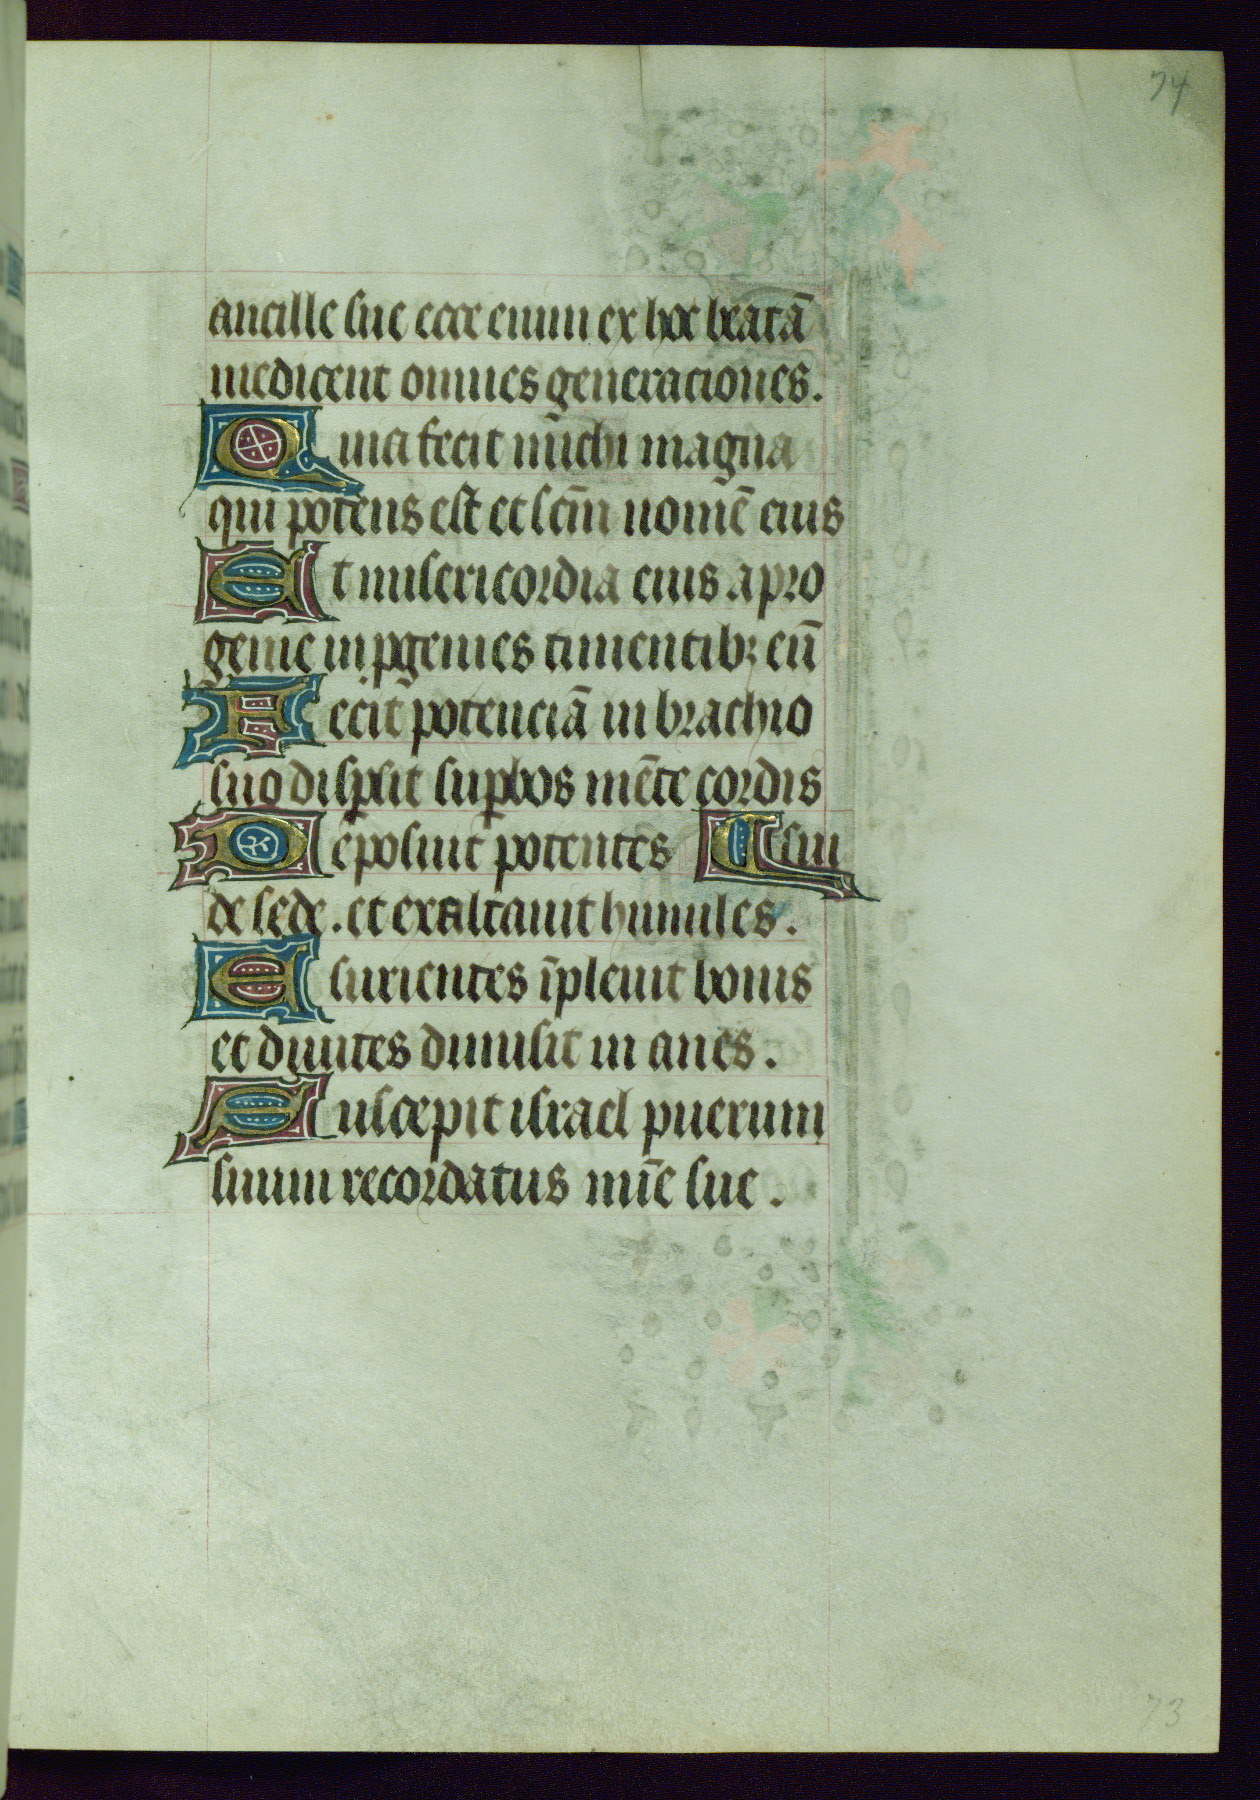 74
ancille sue ecce enim ex hoc beatā
me dicent omnes generaciones.
Quia fecit michi magna
qui potens est et scm̄ nomē eius
Et misericordia eius a pro
genie in ꝓgenies timentibꝫ eū
Fecit potenciā in brachio
suo disꝑsit suꝑbos mēte cordis
Deposuit potentes ¶ sui
de sede . et exaltauit humiles .
Esurientes īpleuit bonis
et diuites dimisit in anes .
Suscepit israel puerum
suum recordatus mīe sue .
73